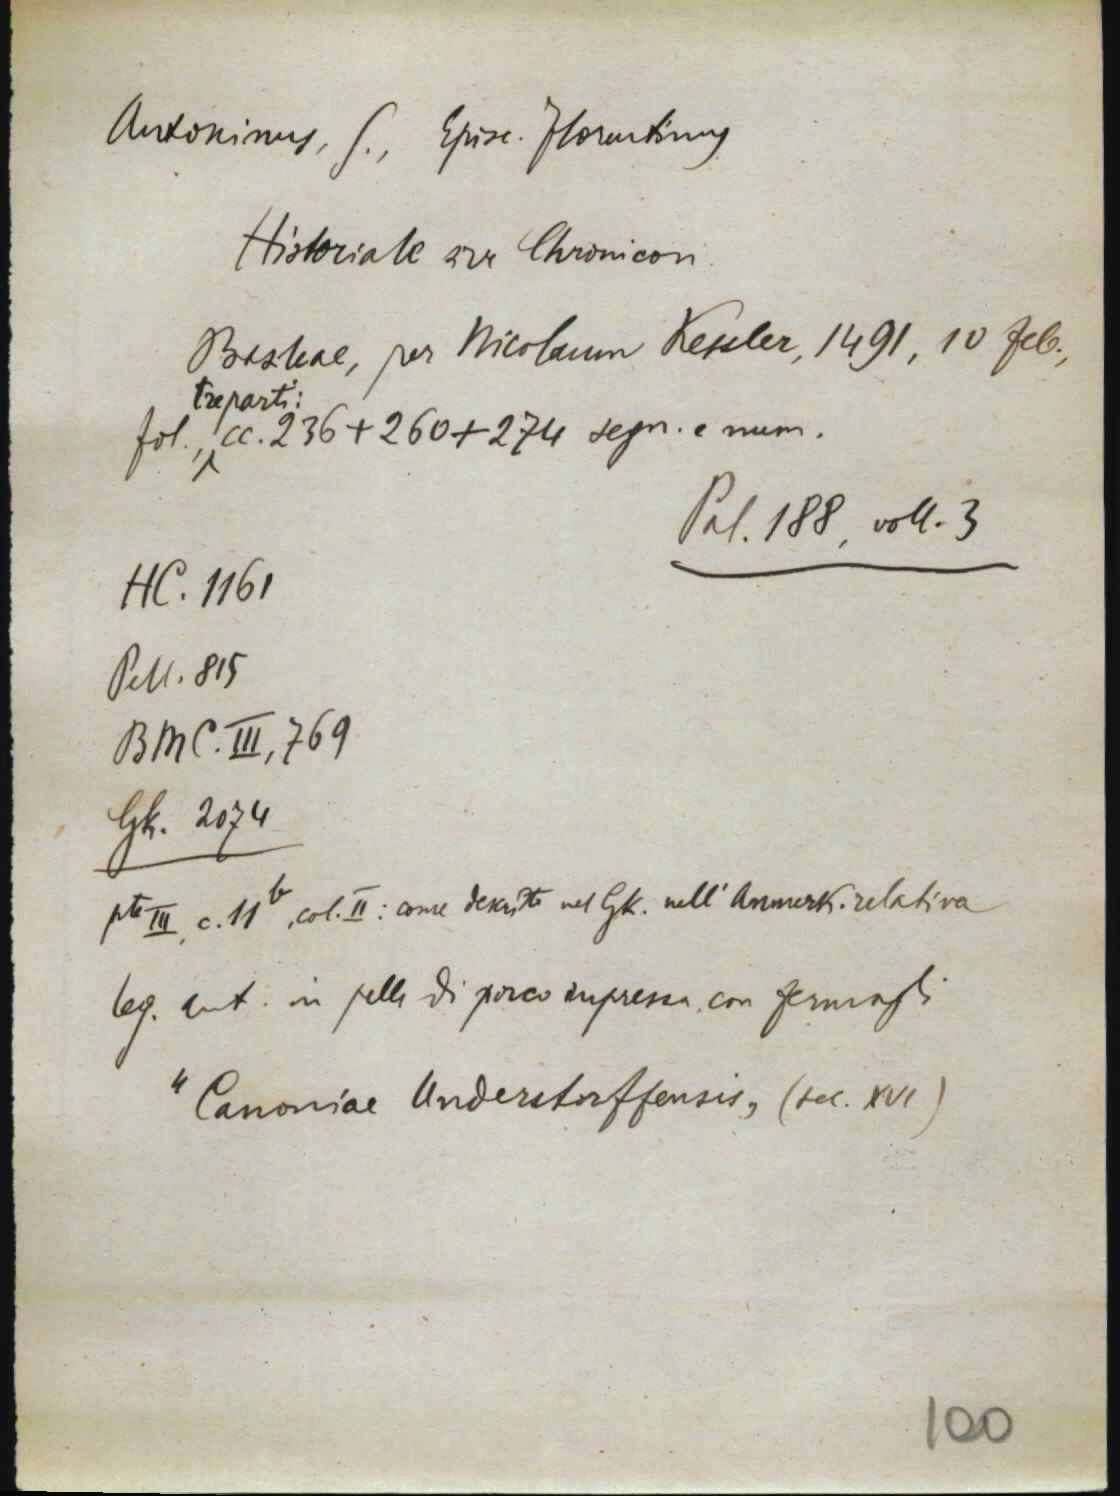 Antoninus, S., Episc. Florentinus
Historiale sive Chronicon
Basileae, per Nicolaum Kessler, 1491, 10 feb.,
tre parti:
fol., cc. 236+260+274 segn. e num.
Pal. 188, voll. 3
HC. 1161
Pell. 815
BMC. III, 769
Gk. 2074
pte III, c. 11b, col. II: come descritto nel Gk. nell'Anmerk. relativa
leg. ant. in pelle di porco impressa, con fermagli
"Canoniae Understorffensis" (sec. XVI)
100